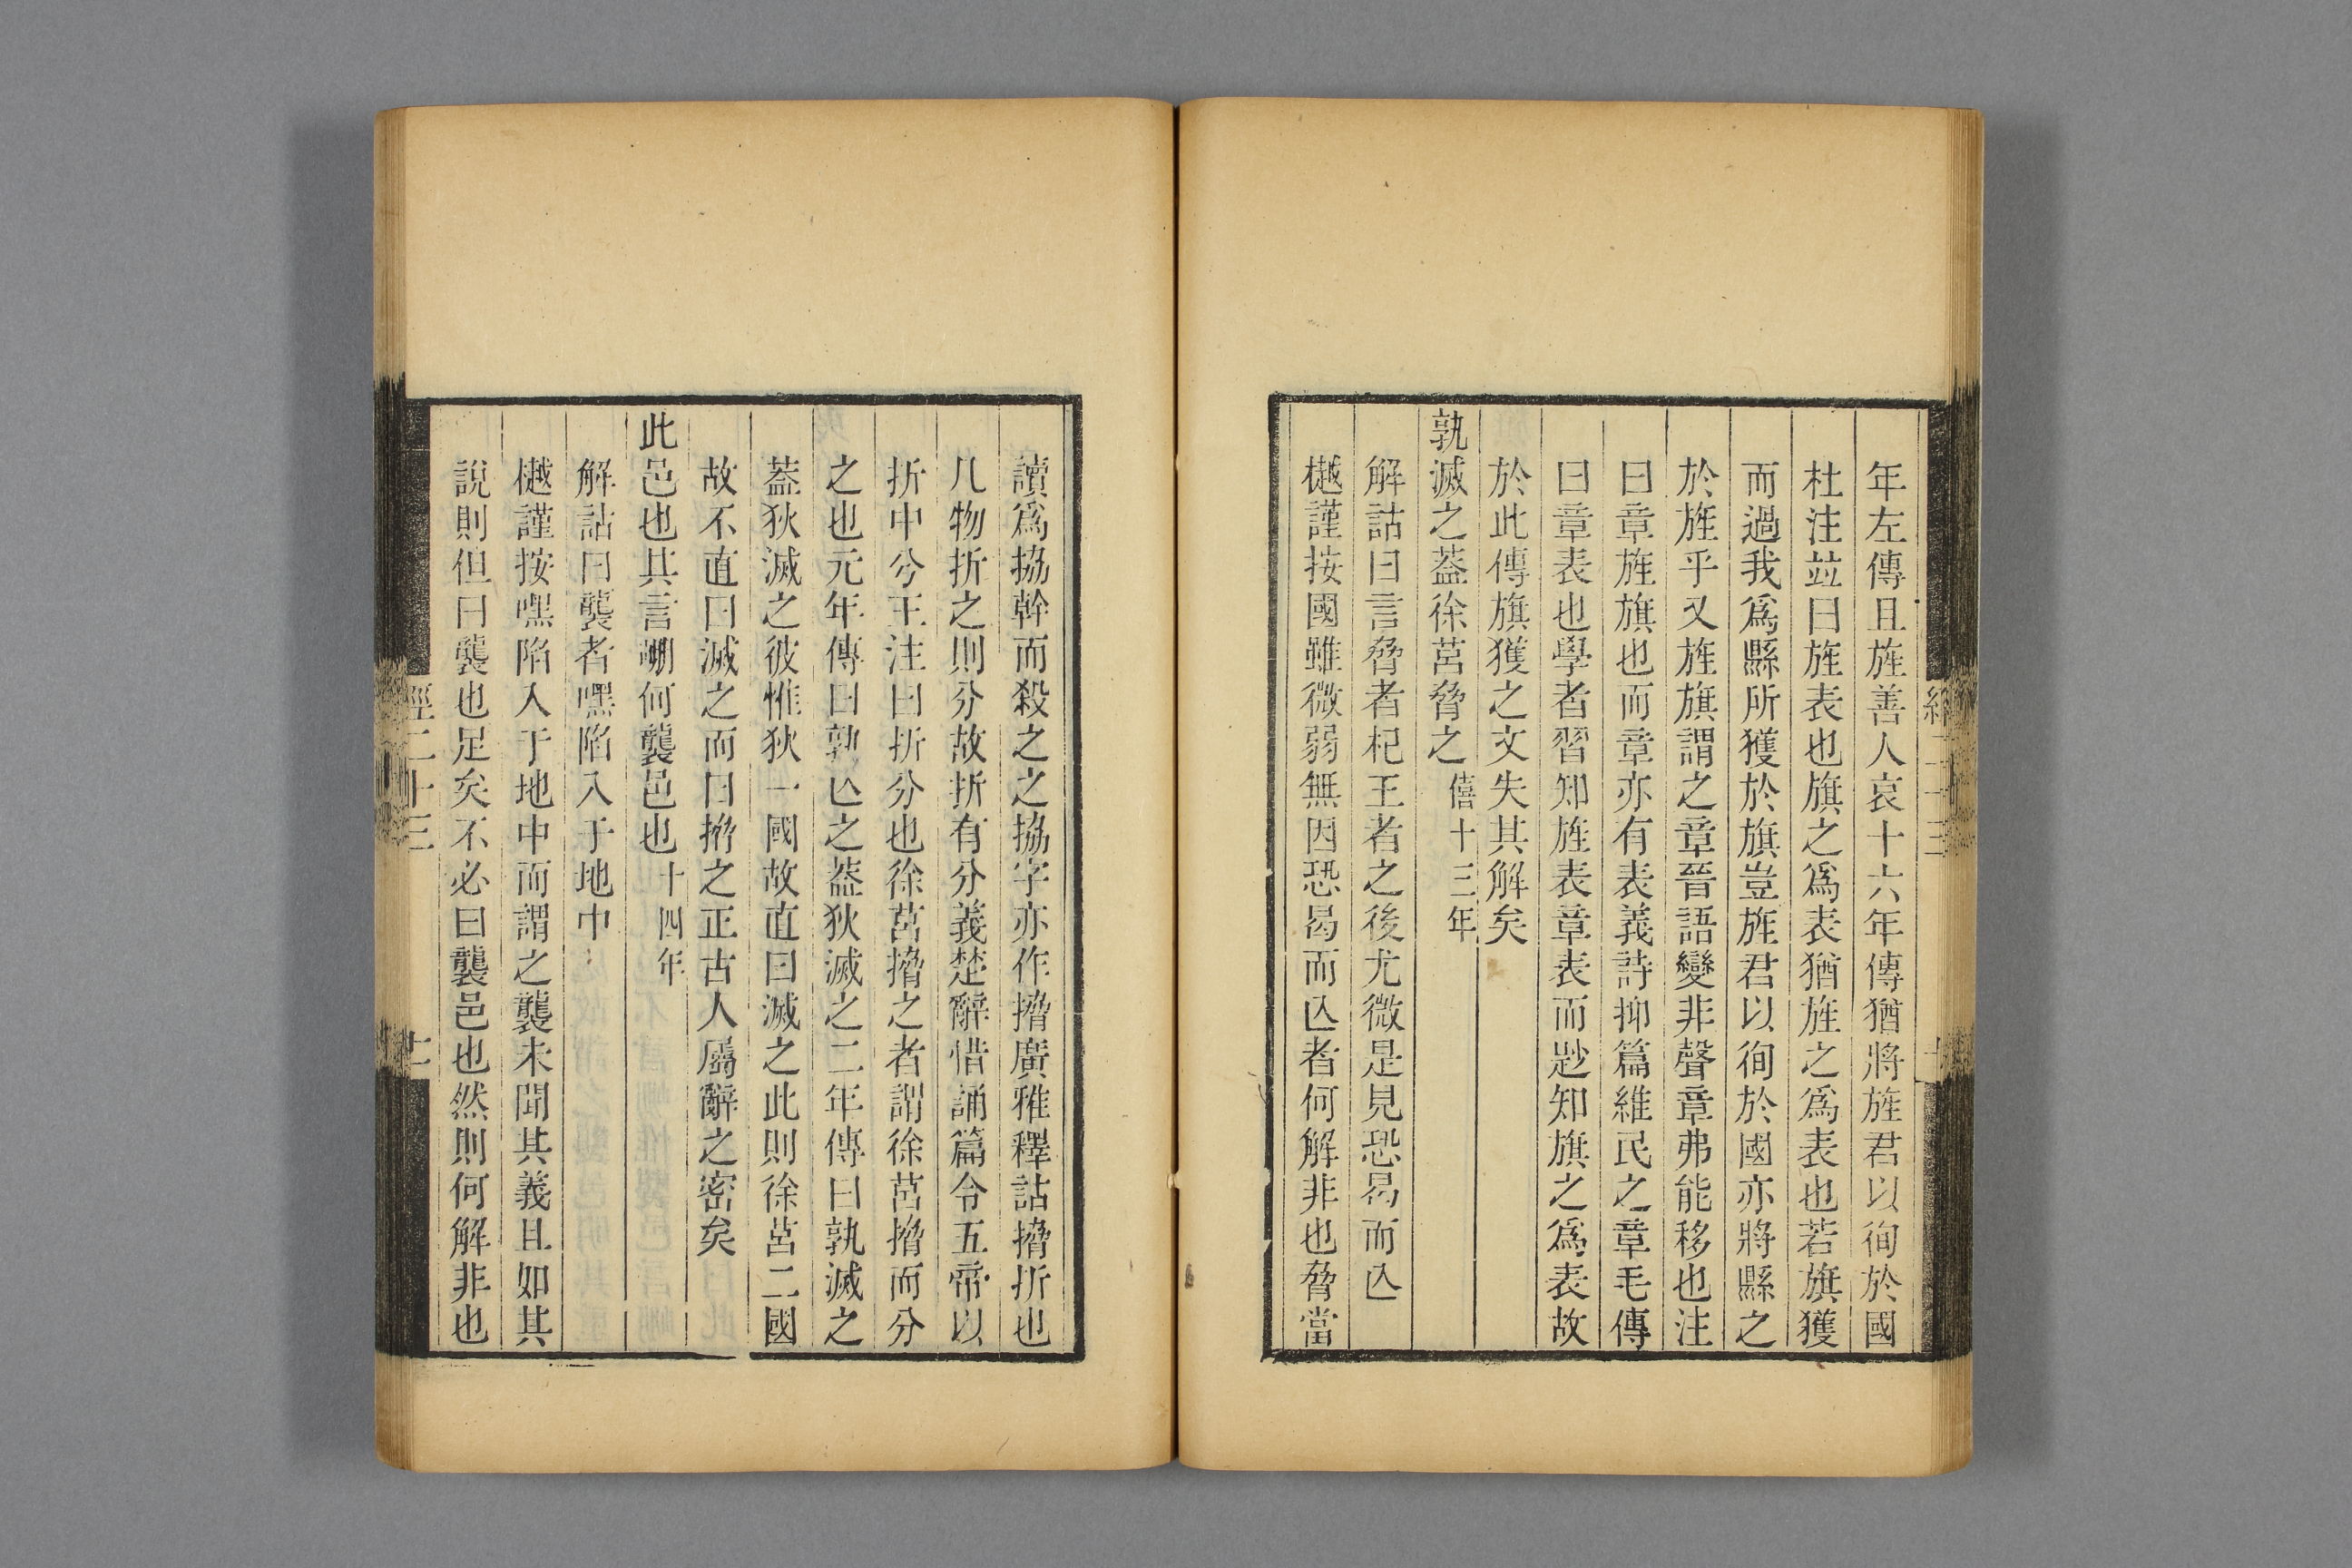 年左傳且旌善人哀十六年傳猶將旌君以徇於國
杜注竝曰旌表也旗之爲表猶旌之爲表也若旗獲
而過我爲縣所獲於旗豈旌君以徇於國亦將縣之
於旌乎又旌旗謂之章晉語變非聲章弗能移也注
曰章旌旗也而章亦有表義詩抑篇維民之章毛傳
曰章表也學者習知旌表章表而尟知旗之爲表故
於此傳旗獲之文失其解矣
孰滅之葢徐莒脅之 僖十三年
解詁曰言脅者杞王者之後尤微是見恐曷而亾
樾謹按國雖微弱無因恐曷而亾者何解非也脅當
讀爲拹幹而殺之之拹字亦作搚廣雅釋詁搚折也
凡物折之則分故折有分義楚辭惜誦篇令五帝以
折中兮王注曰折分也徐莒搚之者謂徐莒搚而分
之也元年傳曰孰亾之葢狄滅之二年傳曰孰滅之
葢狄滅之彼惟狄一國故直曰滅之此則徐莒二國
故不直曰滅之而曰搚之正古人屬辭之密矣
此邑也其言崩何襲邑也 十四年
解詁曰襲者嘿陷入于地中
樾謹按嘿陷入于地中而謂之襲未聞其義且如其
說則但曰襲也足矣不必曰襲邑也然則何解非也
經二十三